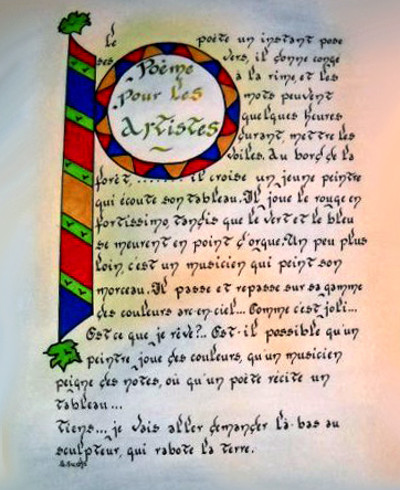 Poème
Pour les
Artistes
le poète un instant pose
ses vers, il donne congé
à la rime, et les
mots peuvent
quelques heures
durant, mettre les
voiles. Au bord de la
forêt, ....... il croise un jeune peintre
qui écoute son tableau. Il joue le rouge en
fortissimo, tandis que le vert et le bleu
se meurent en point d'orgue. Un peu plus
loin, c'est un musicien qui peint son
morceau. Il passe et repasse sur sa gamme
des couleurs arc-en-ciel... Comme c'est joli...
Est ce que je rêve?.. Est-il possible qu'un
peintre joue des couleurs, qu'un musicien
peigne des notes, où qu'un poète récite un
tableau...
Tiens... je vais aller demander là-bas au
sculpteur, qui rabote la terre.